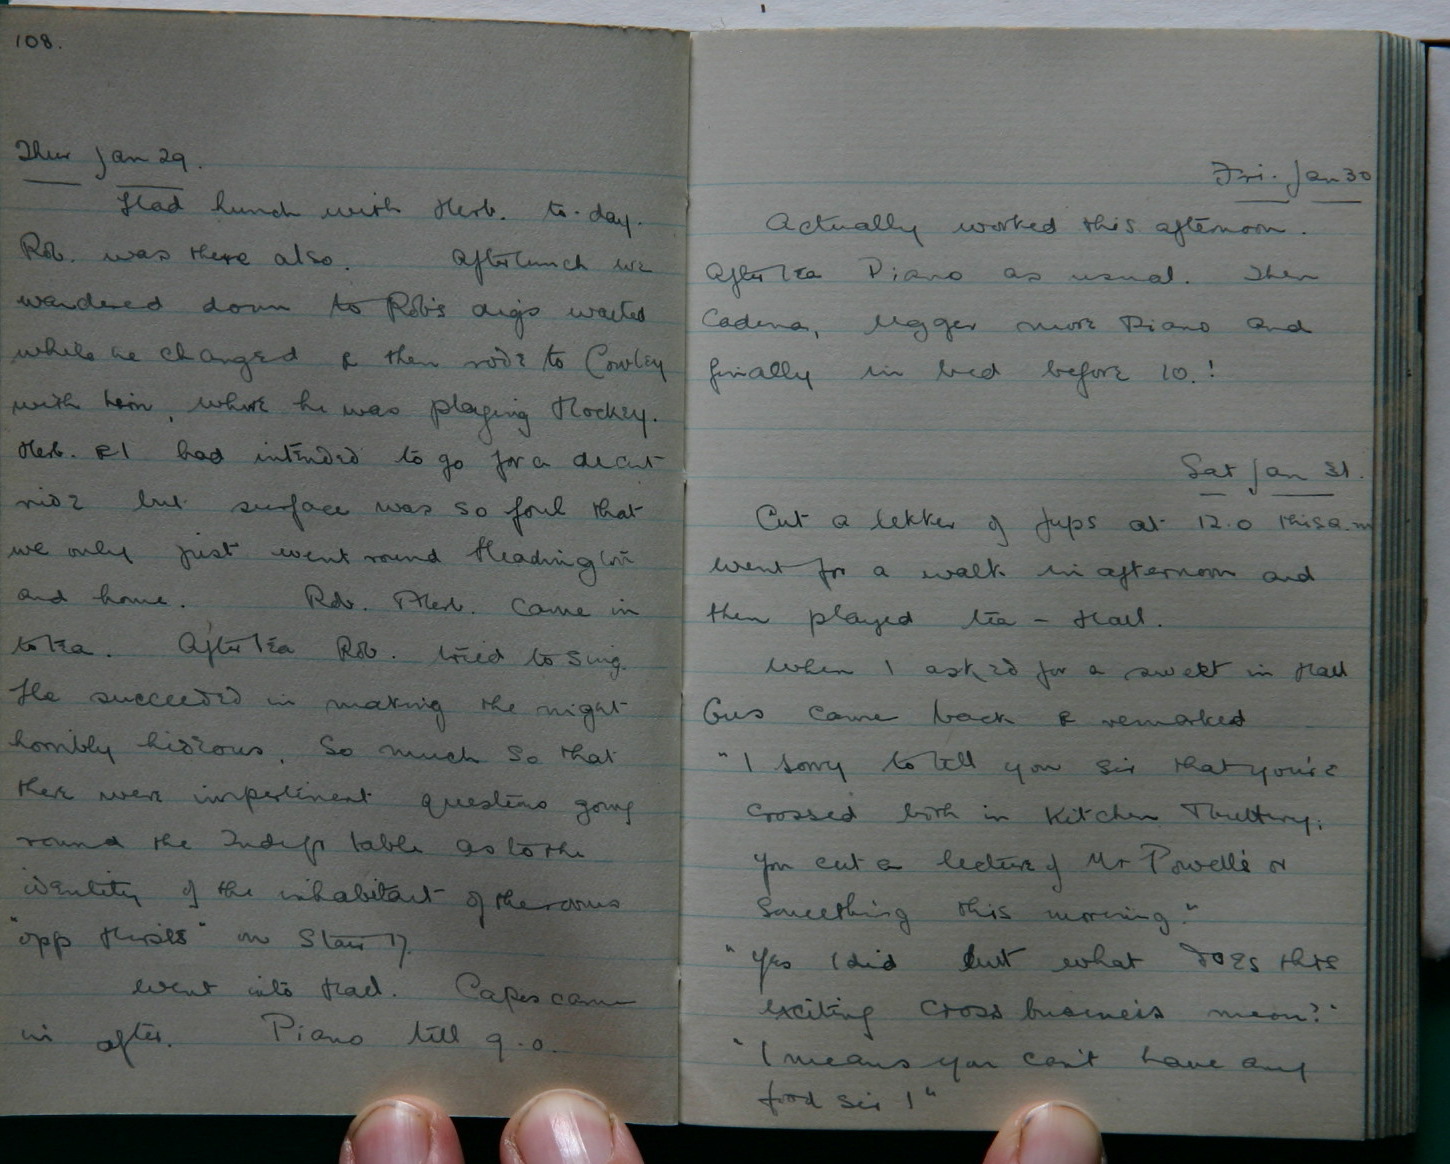 108.
Thur Jan 29.
Had lunch with Herb. to-day.
Rob. was there also. After lunch we
wandered down to Rob's digs waited
while he changed & then rode to Cowley
with him, where he was playing Hockey.
Herb. & I had intended to go for a decent
ride but surface was so foul that
we only just went round Headington
and home. Rob. Herb. came in
to tea. After tea Rob. tried to sing.
He succeeded in making the night
horribly hideous. So much so that
there were impertinent questions going
round the table as to the
identity of the inhabitant of the rooms
"opp " on Stair 17.
Went into Hall. Capes came
in after. Piano till 9.0.
Fri. Jan 30
Actually worked this afternoon.
After tea Piano as usual. Then
Cadena, more Piano and
finally in bed before 10.!
Sat Jan 31.
Cut a lekker of Jupp's at 12.0 this a.m
went for a walk in afternoon and
then played tea - Hall.
When I asked for a sweet in Hall
Gus came back & remarked
"I sorry to tell you sir that you're
crossed both in Kitchen & Buttery;
you cut a lecture of Mr Powell's or
something this morning."
"Yes I did but what does this
exciting cross business mean?"
"I means you can't have any
food sir!"